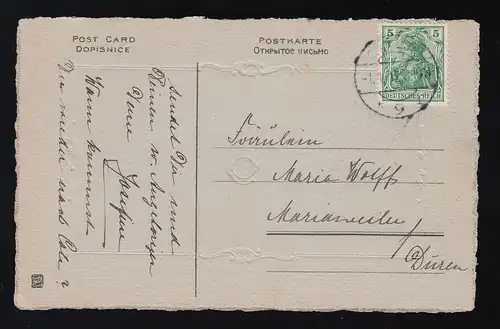 POST CARD
DOPISNICE
POSTKARTE
ОТКРЫТОЕ ПИСЬМО
5 5
DEUTSCHES REICH
9
sendet Dir und
Deinen w. Angehörigen
Deine
Josefine
Wann kommst
Du wieder nach Cöln?
Fräulein
Maria Wolff
Mariaweiler/
Düren